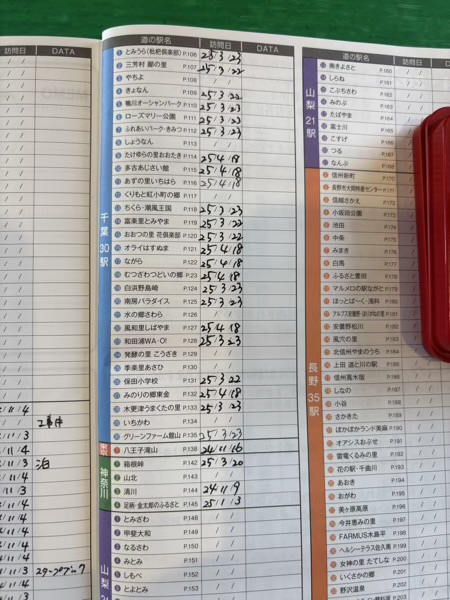 訪問日 DATA
道の駅名 訪問日 DATA
千葉 30駅
とみうら(枇杷倶楽部) P.106 25 3 23
三芳村 鄙の里 P.107 25 3 22
やちよ P.108
きょなん P.109 25 3 22
鴨川オーシャンパーク P.110 25 3 23
ローズマリー公園 P.111 25 3 23
ふれあいパーク・きみつ P.112 25 3 23
しょうなん P.113
たけゆらの里おおたき P.114 25 4 18
多古あじさい館 P.115 25 4 18
あずの里いちはら P.116 25 4 18
くりもと紅小町の郷 P.117
ちくら・潮風王国 P.118 25 3 23
富楽里とみやま P.119 25 3 22
おおつの里 花倶楽部 P.120 25 3 23
オライはすぬま P.121 25 4 18
ながら P.122 25 4 18
むつざわつどいの郷 P.123 25 4 18
白浜野島崎 P.124 25 3 23
南房パラダイス P.125 25 3 23
水の郷さわら P.126
風和里しばやま P.127 25 4 18
和田浦WA・O! P.128 25 3 23
発酵の里 こうざき P.129
季楽里あさひ P.130
保田小学校 P.131 25 3 22
みのりの郷東金 P.132 25 4 18
木更津うまくたの里 P.133 25 3 23
いちかわ P.134
グリーンファーム館山 P.135 25 3 23
八王子滝山 P.138 24 11 16
神奈川
箱根峠 P.142 25 3 20
山北 P.143
清川 P.144 24 11 9
足柄・金太郎のふるさと P.145 25 1 13
とみざわ P.148
甲斐大和 P.149
なるさわ P.150
みとみ P.151
しもべ P.152
とよとみ P.153
道の駅名 訪問日 DATA
山梨 21駅
南きよさと P.160
しらね P.161
こぶちさわ P.162
みのぶ P.163
たばやま P.164
富士川 P.165
こすげ P.166
つる P.167
なんぶ P.168
長野 35駅
信州新町 P.170
長野市大岡特産センター P.171
信越さかえ P.172
小坂田公園 P.173
池田 P.174
中条 P.175
みまき P.176
白馬 P.177
ふるさと豊田 P.178
マルメロの駅ながと P.179
ほっとぱ〜く・浅科 P.180
アルプス安曇野・ほりがねの里 P.181
安曇野松川 P.182
風穴の里 P.183
北信州やまのうち P.184
上田 道と川の駅 P.185
信州蔦木宿 P.186
しなの P.187
小谷 P.188
さかきた P.189
ぽかぽかランド美麻 P.190
オアシスおぶせ P.191
雷電くるみの里 P.192
花の駅・千曲川 P.193
あおき P.194
おがわ P.195
美ヶ原高原 P.196
今井恵みの里 P.197
FARMUS木島平 P.198
ヘルシーテラス佐久南 P.199
女神の里 たてしな P.200
いくさかの郷 P.201
野沢温泉 P.202